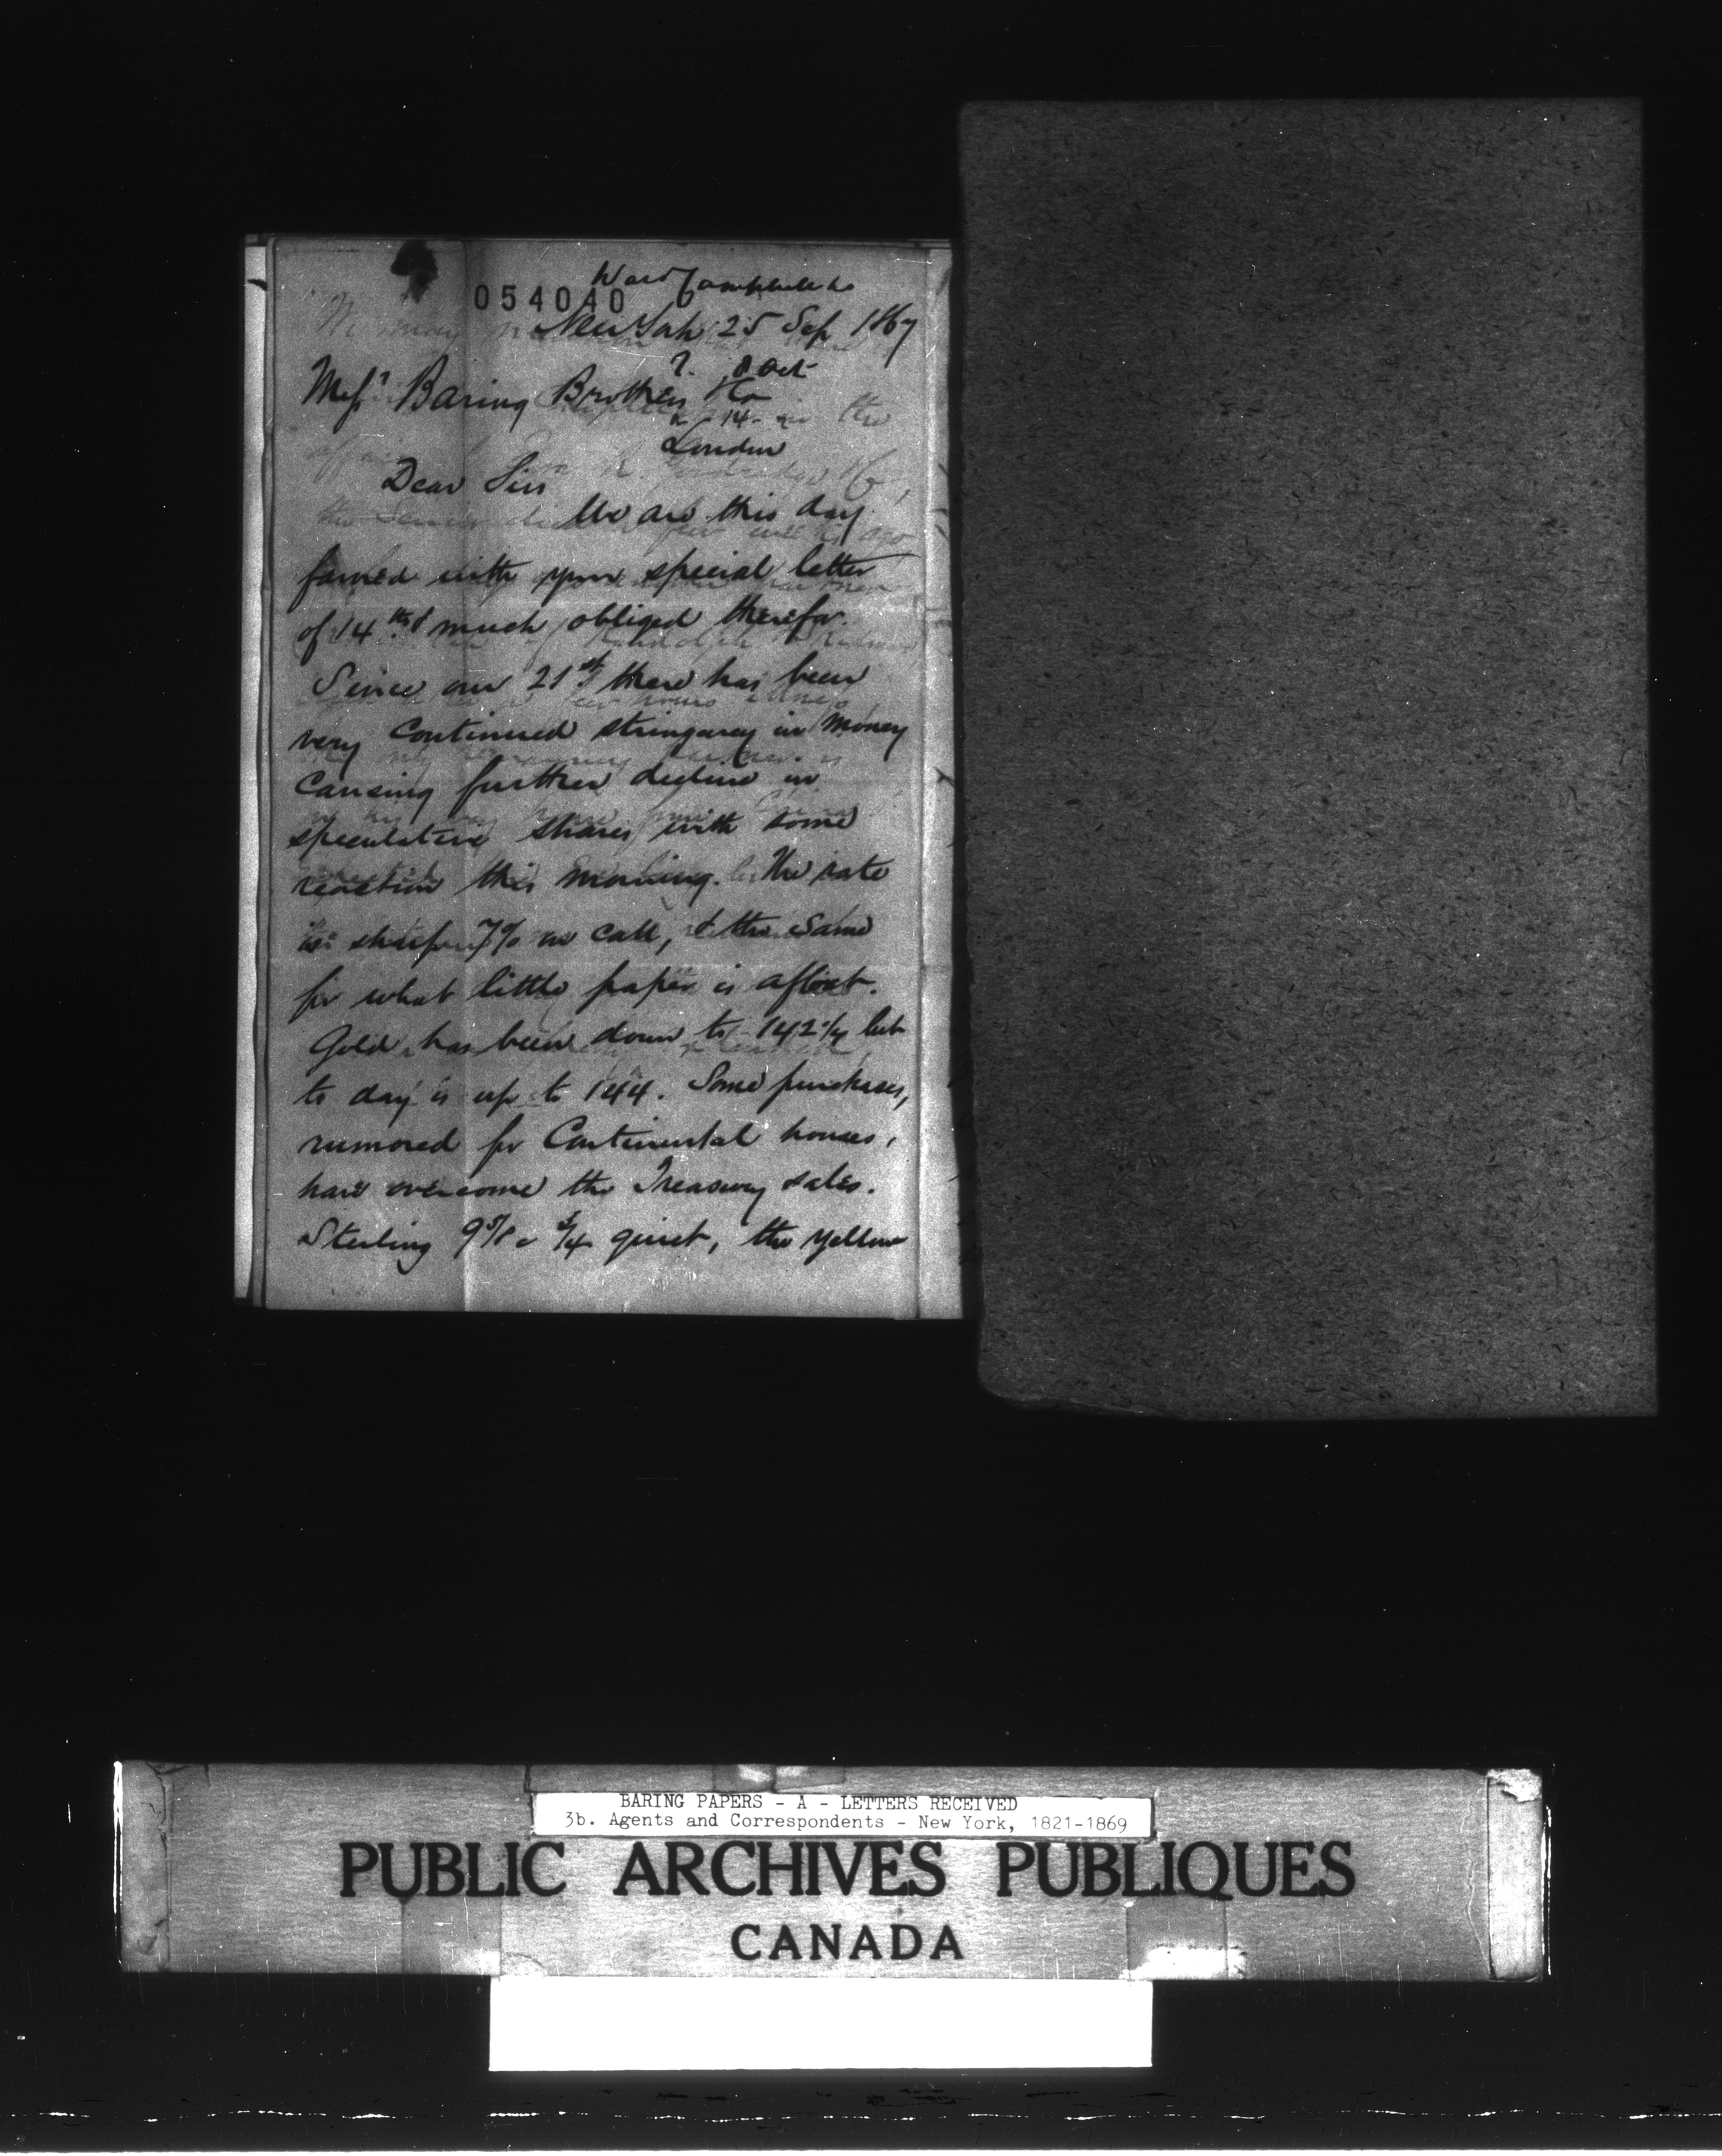 Ward Campbell & Co
054040
New York 25 Sep 1867
8 Oct
Messrs Baring Brothers & Co
14
London
Dear Sirs
We are this day
favored with your special letter
of 14th & much obliged therefor.
Since our 21st there has been
very continued stringency in money
causing further decline in
speculative shares with some
reaction this morning. The rate
is sharp 7% on call, & the same
for what little paper is afloat.
Gold has been down to 142 1/4 but
to day is up to 144. Some purchases,
rumored for Continental houses,
have overcome the Treasury sales.
Sterling 9 5/8 a 3/4 quiet, the yellow
BARING PAPERS - A - LETTERS RECEIVED
3b. Agents and Correspondents - New York, 1821-1869
PUBLIC ARCHIVES PUBLIQUES
CANADA